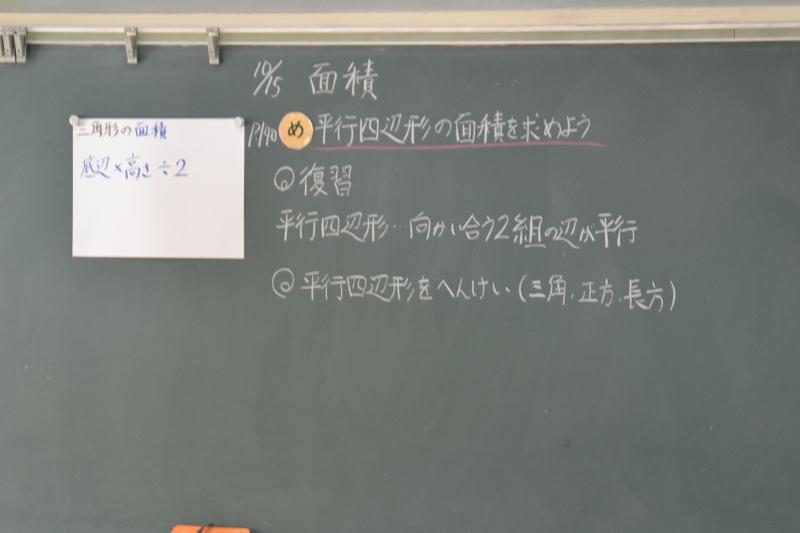 10/15 面積
三角形の面積
底辺×高さ÷2
P.140 め 平行四辺形の面積を求めよう
復習
平行四辺形…向かい合う2組の辺が平行
平行四辺形をへんけい(三角.正方.長方)